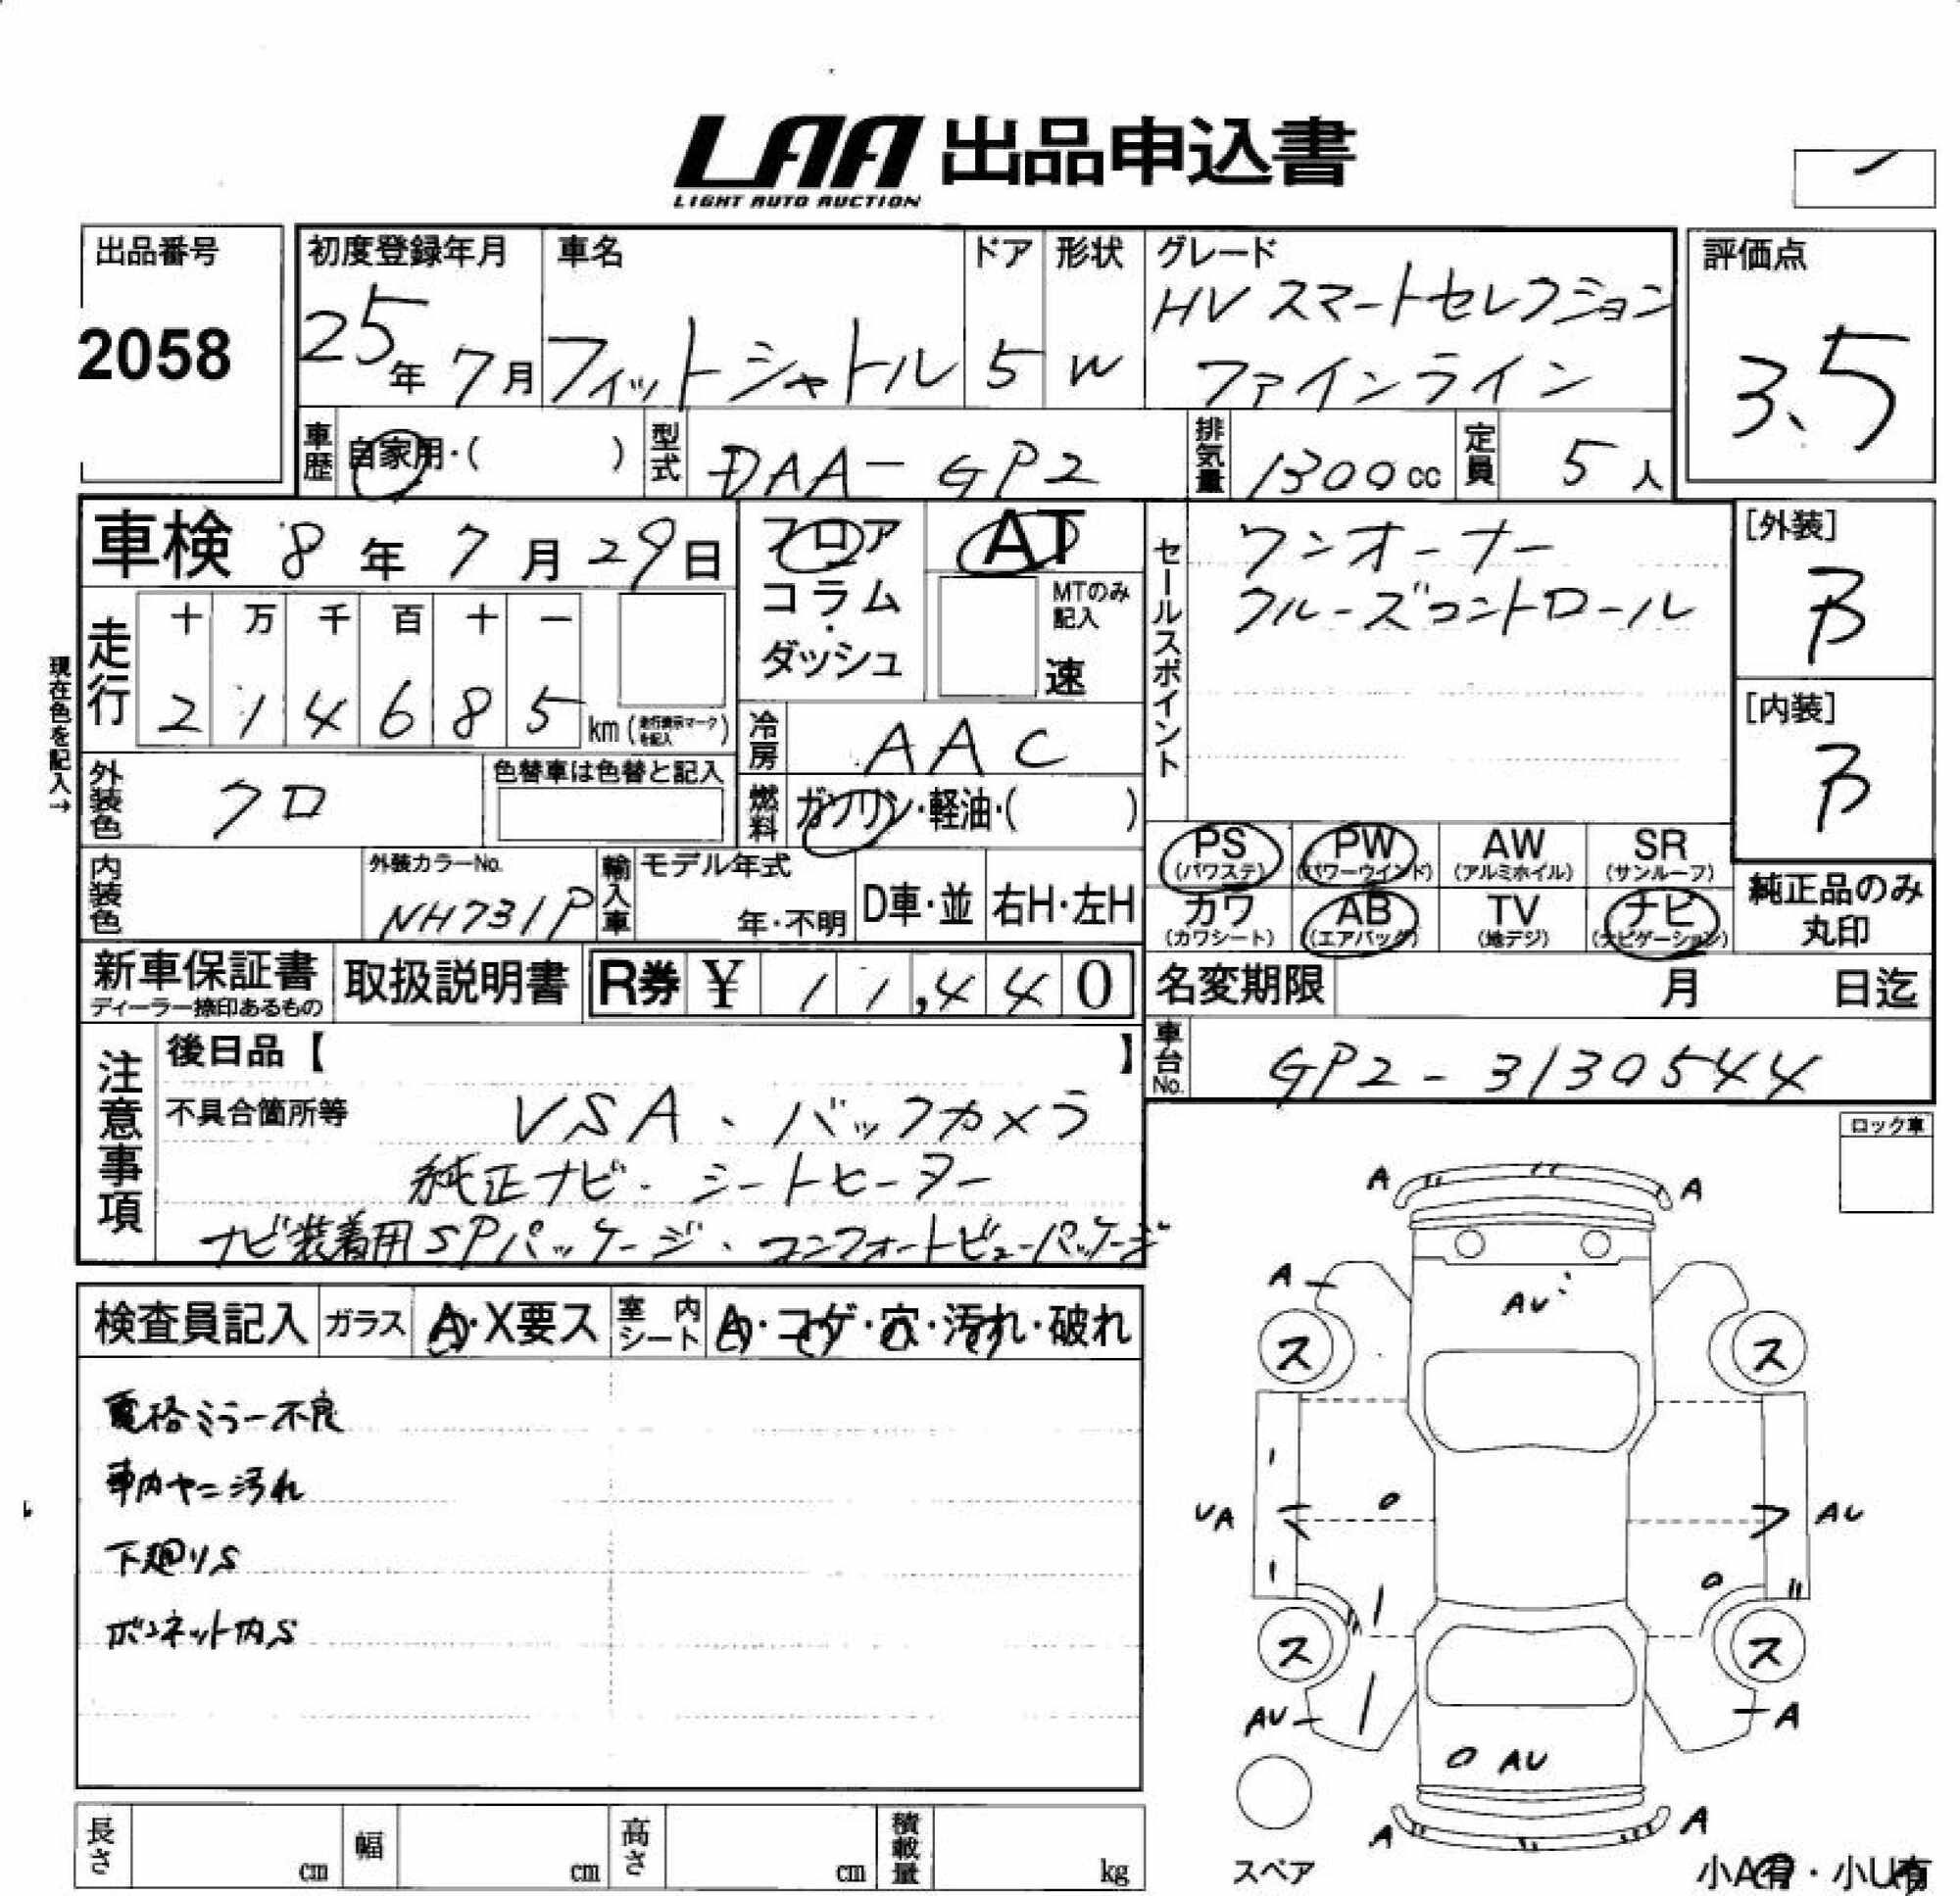 LAA 出品申込書
LIGHT AUTO AUCTION
出品番号
2058
初度登録年月
25年 7月
車名
フィットシャトル
ドア
5
形状
W
グレード
HV スマートセレクション
ファインライン
評価点
3.5
車歴
自家用・( )
型式
DAA-GP2
排気量
1300cc
定員
5人
車検 8年 7月 29日
フロア
コラム
・
ダッシュ
AT
MTのみ
記入
速
現在色を記入→
走行
十 万 千 百 十 一
2 1 4 6 8 5 km (走行表示マークを記入)
冷房
AAC
外装色
クロ
色替車は色替と記入
燃料
ガソリン・軽油・( )
内装色
外装カラーNo.
NH731P
輸入車
モデル年式
年・不明
D車・並
右H・左H
セールスポイント
ワンオーナー
クルーズコントロール
[外装]
B
[内装]
B
PS
(パワステ)
PW
(パワーウインド)
AW
(アルミホイル)
SR
(サンルーフ)
カワ
(カワシート)
AB
(エアバッグ)
TV
(地デジ)
ナビ
(ナビゲーション)
純正品のみ
丸印
新車保証書
ディーラー捺印あるもの
取扱説明書
R券 ¥ 11,440
名変期限 月 日迄
車台No.
GP2-3130544
注意事項
後日品【 】
不具合箇所等
VSA、バックカメラ
純正ナビ・シートヒーター
ナビ装着用SPパッケージ、コンフォートビューパッケージ
検査員記入
ガラス
A・X要ス
室内シート
A・コゲ・穴・汚れ・破れ
電格ミラー不良
車内ヤニ汚れ
下廻りS
ボンネット内S
ロック車
A A
A
AU
ス ス
UA AU
ス ス
AU A
AU
A A
スペア
小A有・小U有
長さ cm
幅 cm
高さ cm
積載量 kg